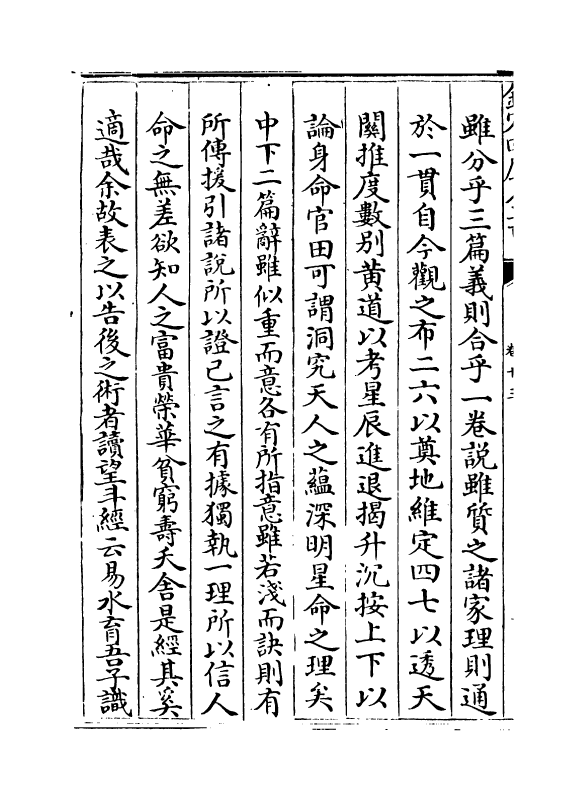 雖分乎三篇義則合乎一卷説雖質之諸家理則通
於一貫自今觀之布二六以奠地維定四七以透天
關推度數别黄道以考星辰進退揭升沉按上下以
論身命官田可謂洞究天人之藴深明星命之理矣
中下二篇辭雖似重而意各有所指意雖若淺而訣則有
所傳援引諸説所以證已言之有據獨執一理所以信人
命之無差欲知人之富貴榮華貧窮壽夭舍是經其奚
適哉余故表之以告後之術者讀望斗經云易水育吾子識